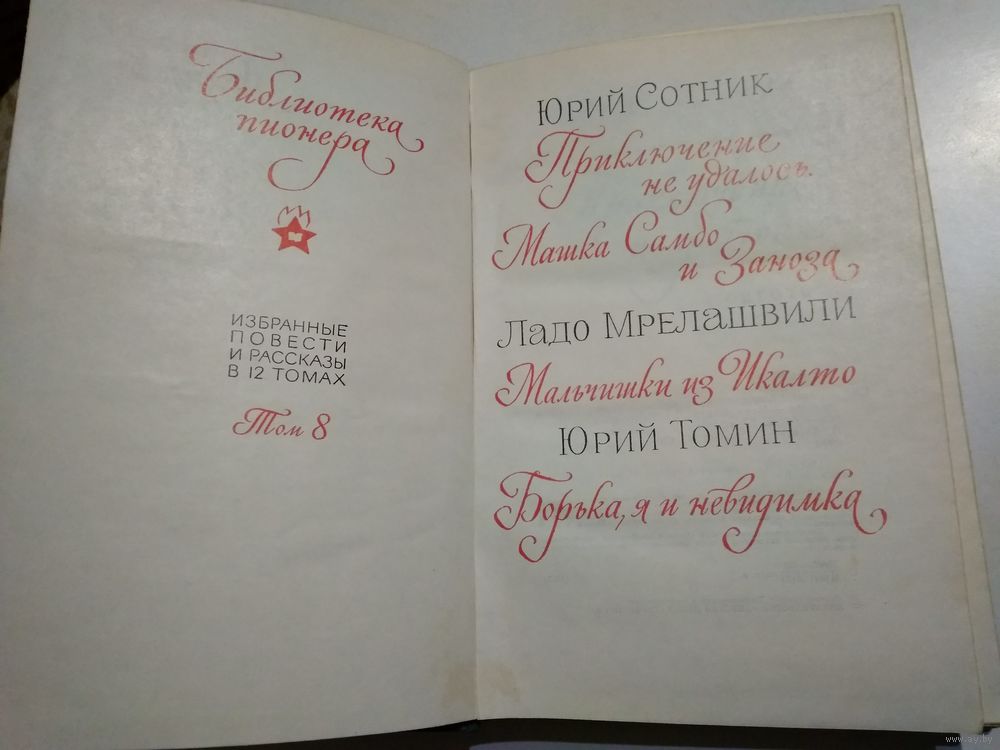 Библиотека
пионера
ИЗБРАННЫЕ
ПОВЕСТИ
И РАССКАЗЫ
В 12 ТОМАХ
Том 8
ЮРИЙ СОТНИК
Приключение
не удалось.
Машка Самбо
и Заноза
ЛАДО МРЕЛАШВИЛИ
Мальчишки из Икалто
ЮРИЙ ТОМИН
Борька, я и невидимка
www.ay.by